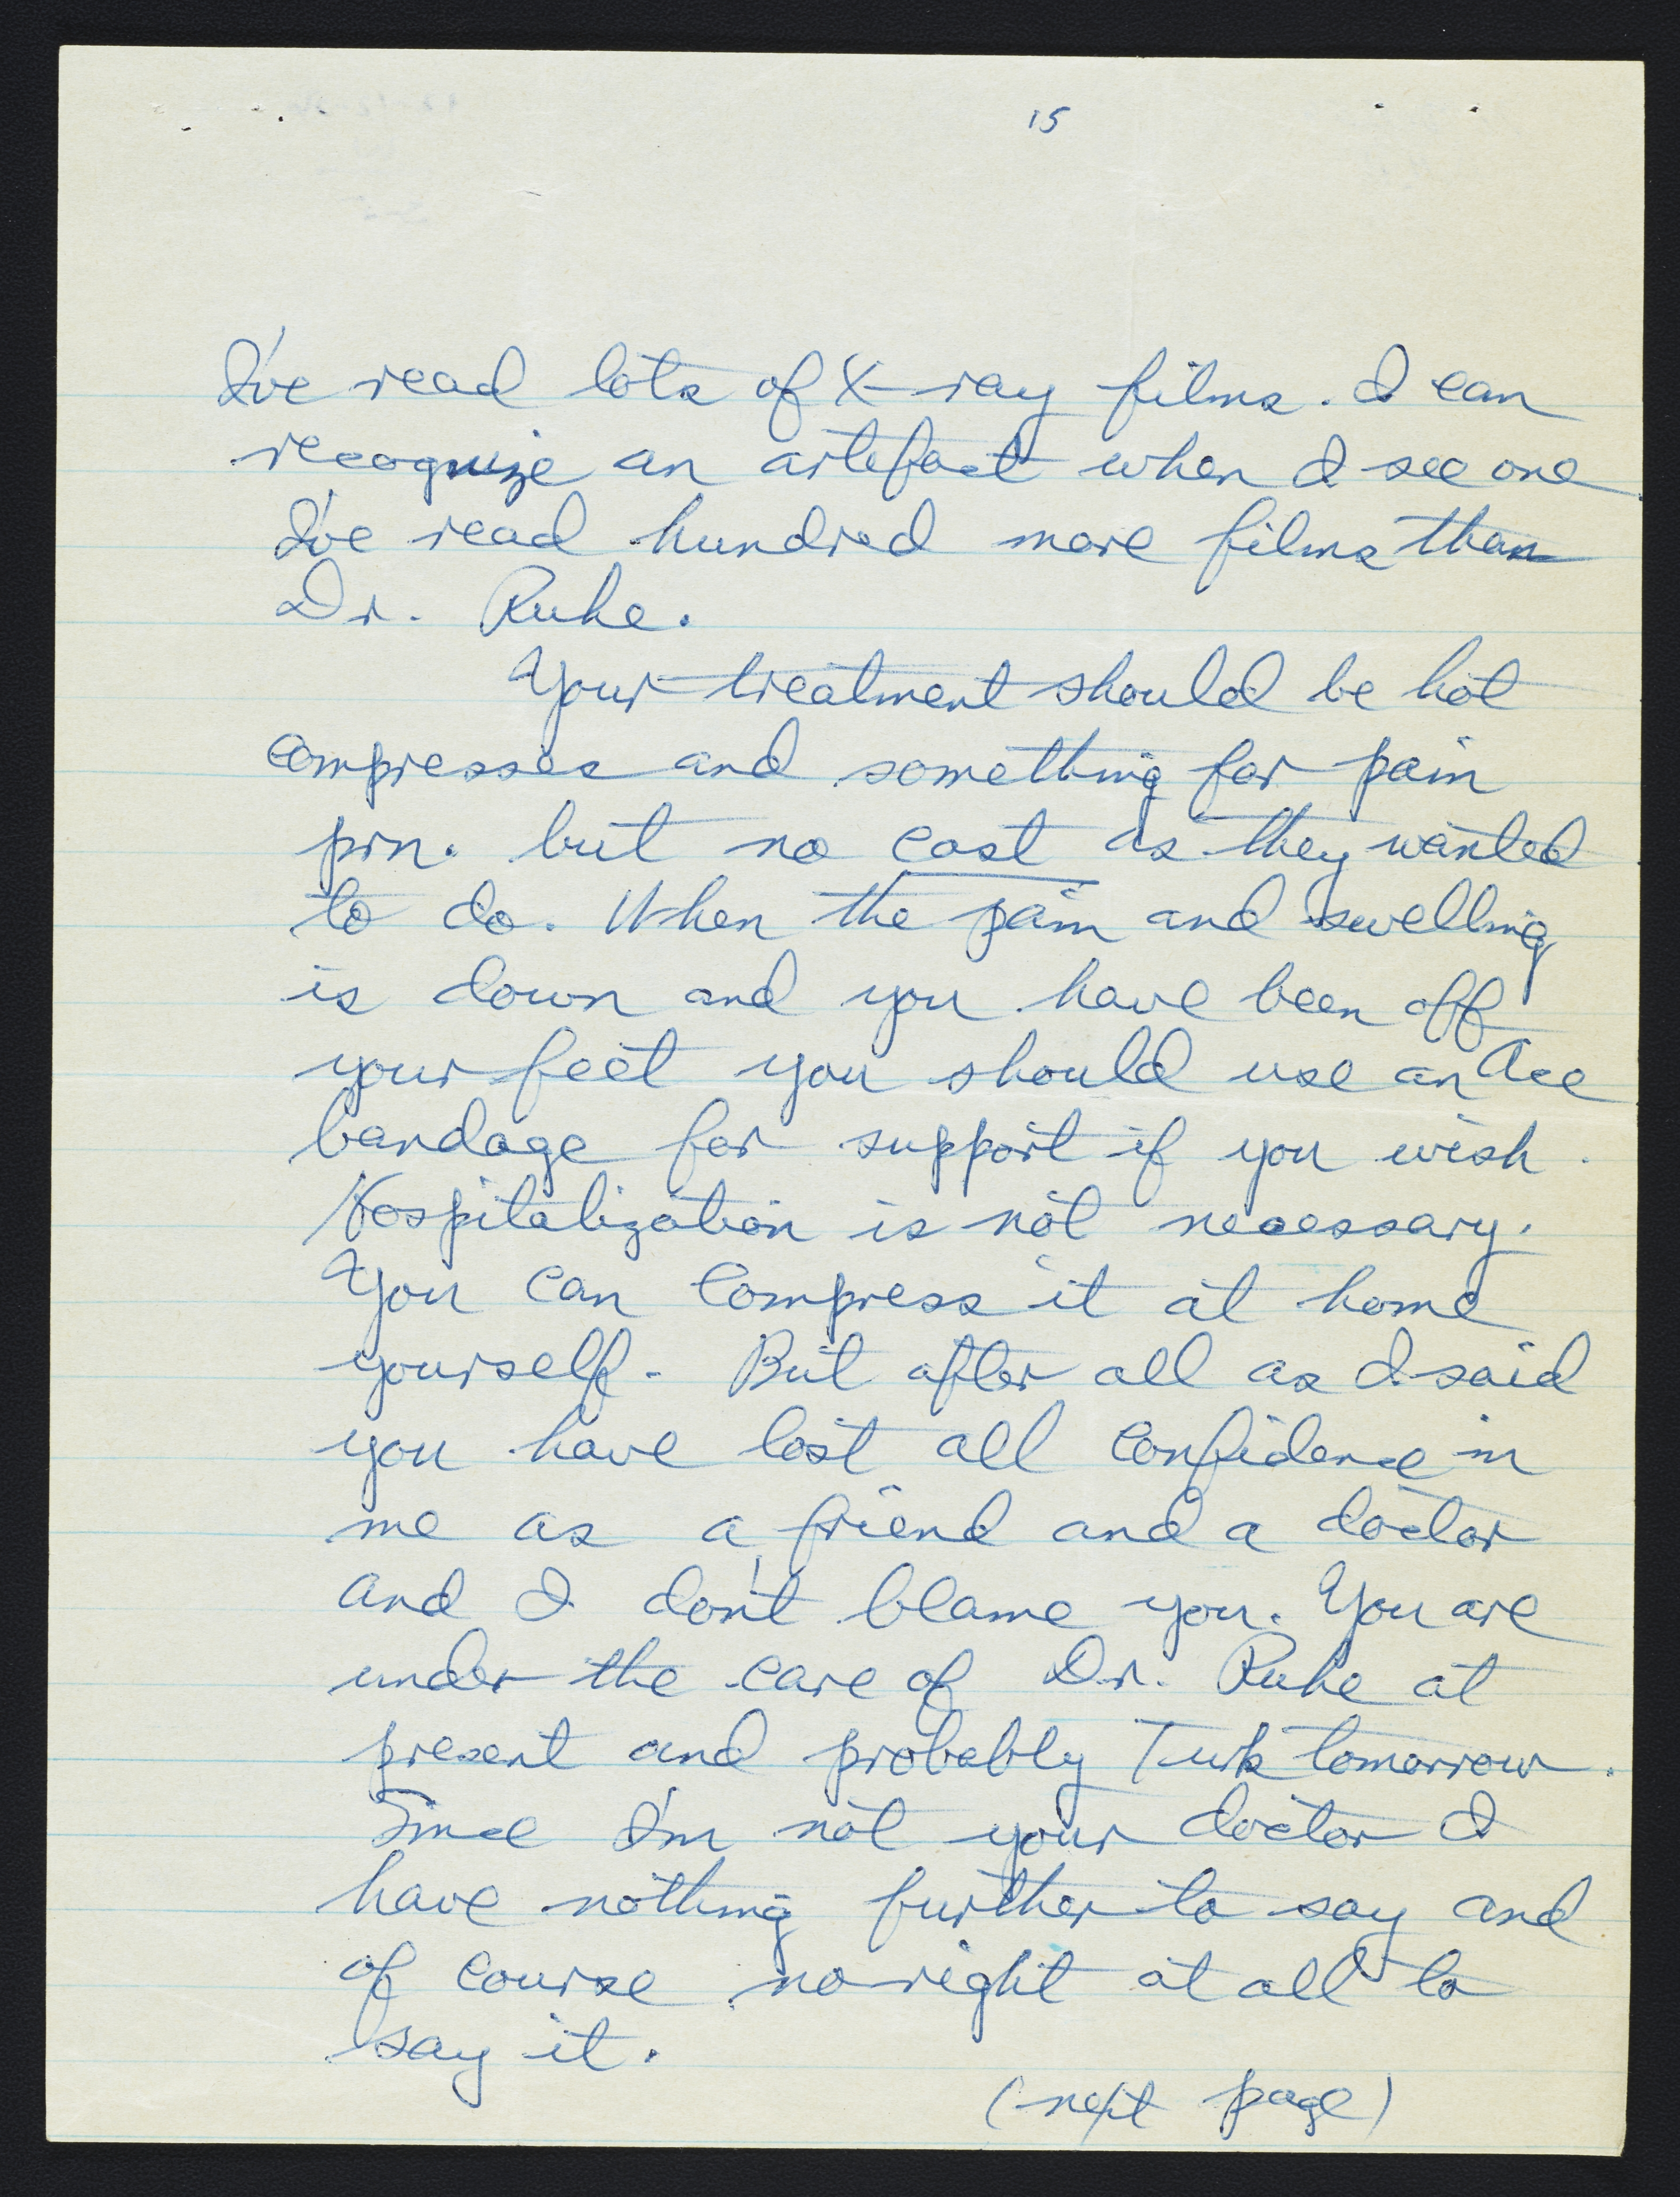 15
I've read lots of X-ray films. I can
recognize an artefact when I see one
I've read hundred more films than
Dr. Ruhe.
Your treatment should be hot
compresses and something for pain
prn. but no cast as they wanted
to do. When the pain and swelling
is down and you have been off
your feet you should use an Ace
bandage for support if you wish.
Hospitalization is not necessary.
You can compress it at home
yourself. But after all as I said
you have lost all confidence in
me as a friend and a doctor
and I don't blame you. You are
under the care of Dr. Ruhe at
present and probably Turk tomorrow.
Since I'm not your doctor I
have nothing further to say and
of course no right at all to
say it.
(next page)